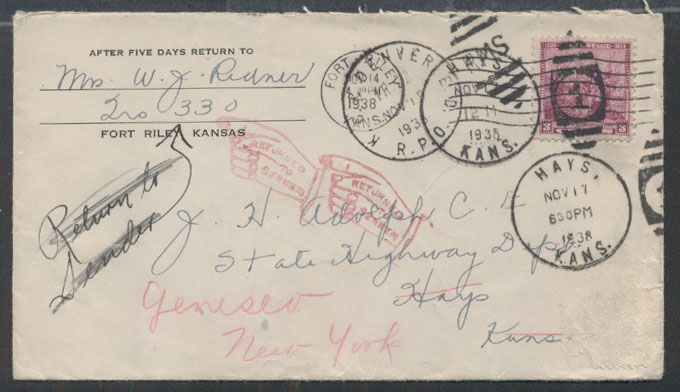 AFTER FIVE DAYS RETURN TO
Mrs. W. J. Redner
Qrs 330
FORT RILEY, KANSAS
Return to
Sender
RETURNED
TO
SENDER
RETURNED
TO
SENDER
FORT RILEY
NOV 14
1938
KANS.
DENVER
NOV
193
R.P.O.
HAYS,
NOV
12 M
1938
KANS.
HAYS,
NOV 17
630PM
1938
KANS.
J. H. Adolph C. E.
State Highway Dept
Hays
Kans
Geneseo
New York